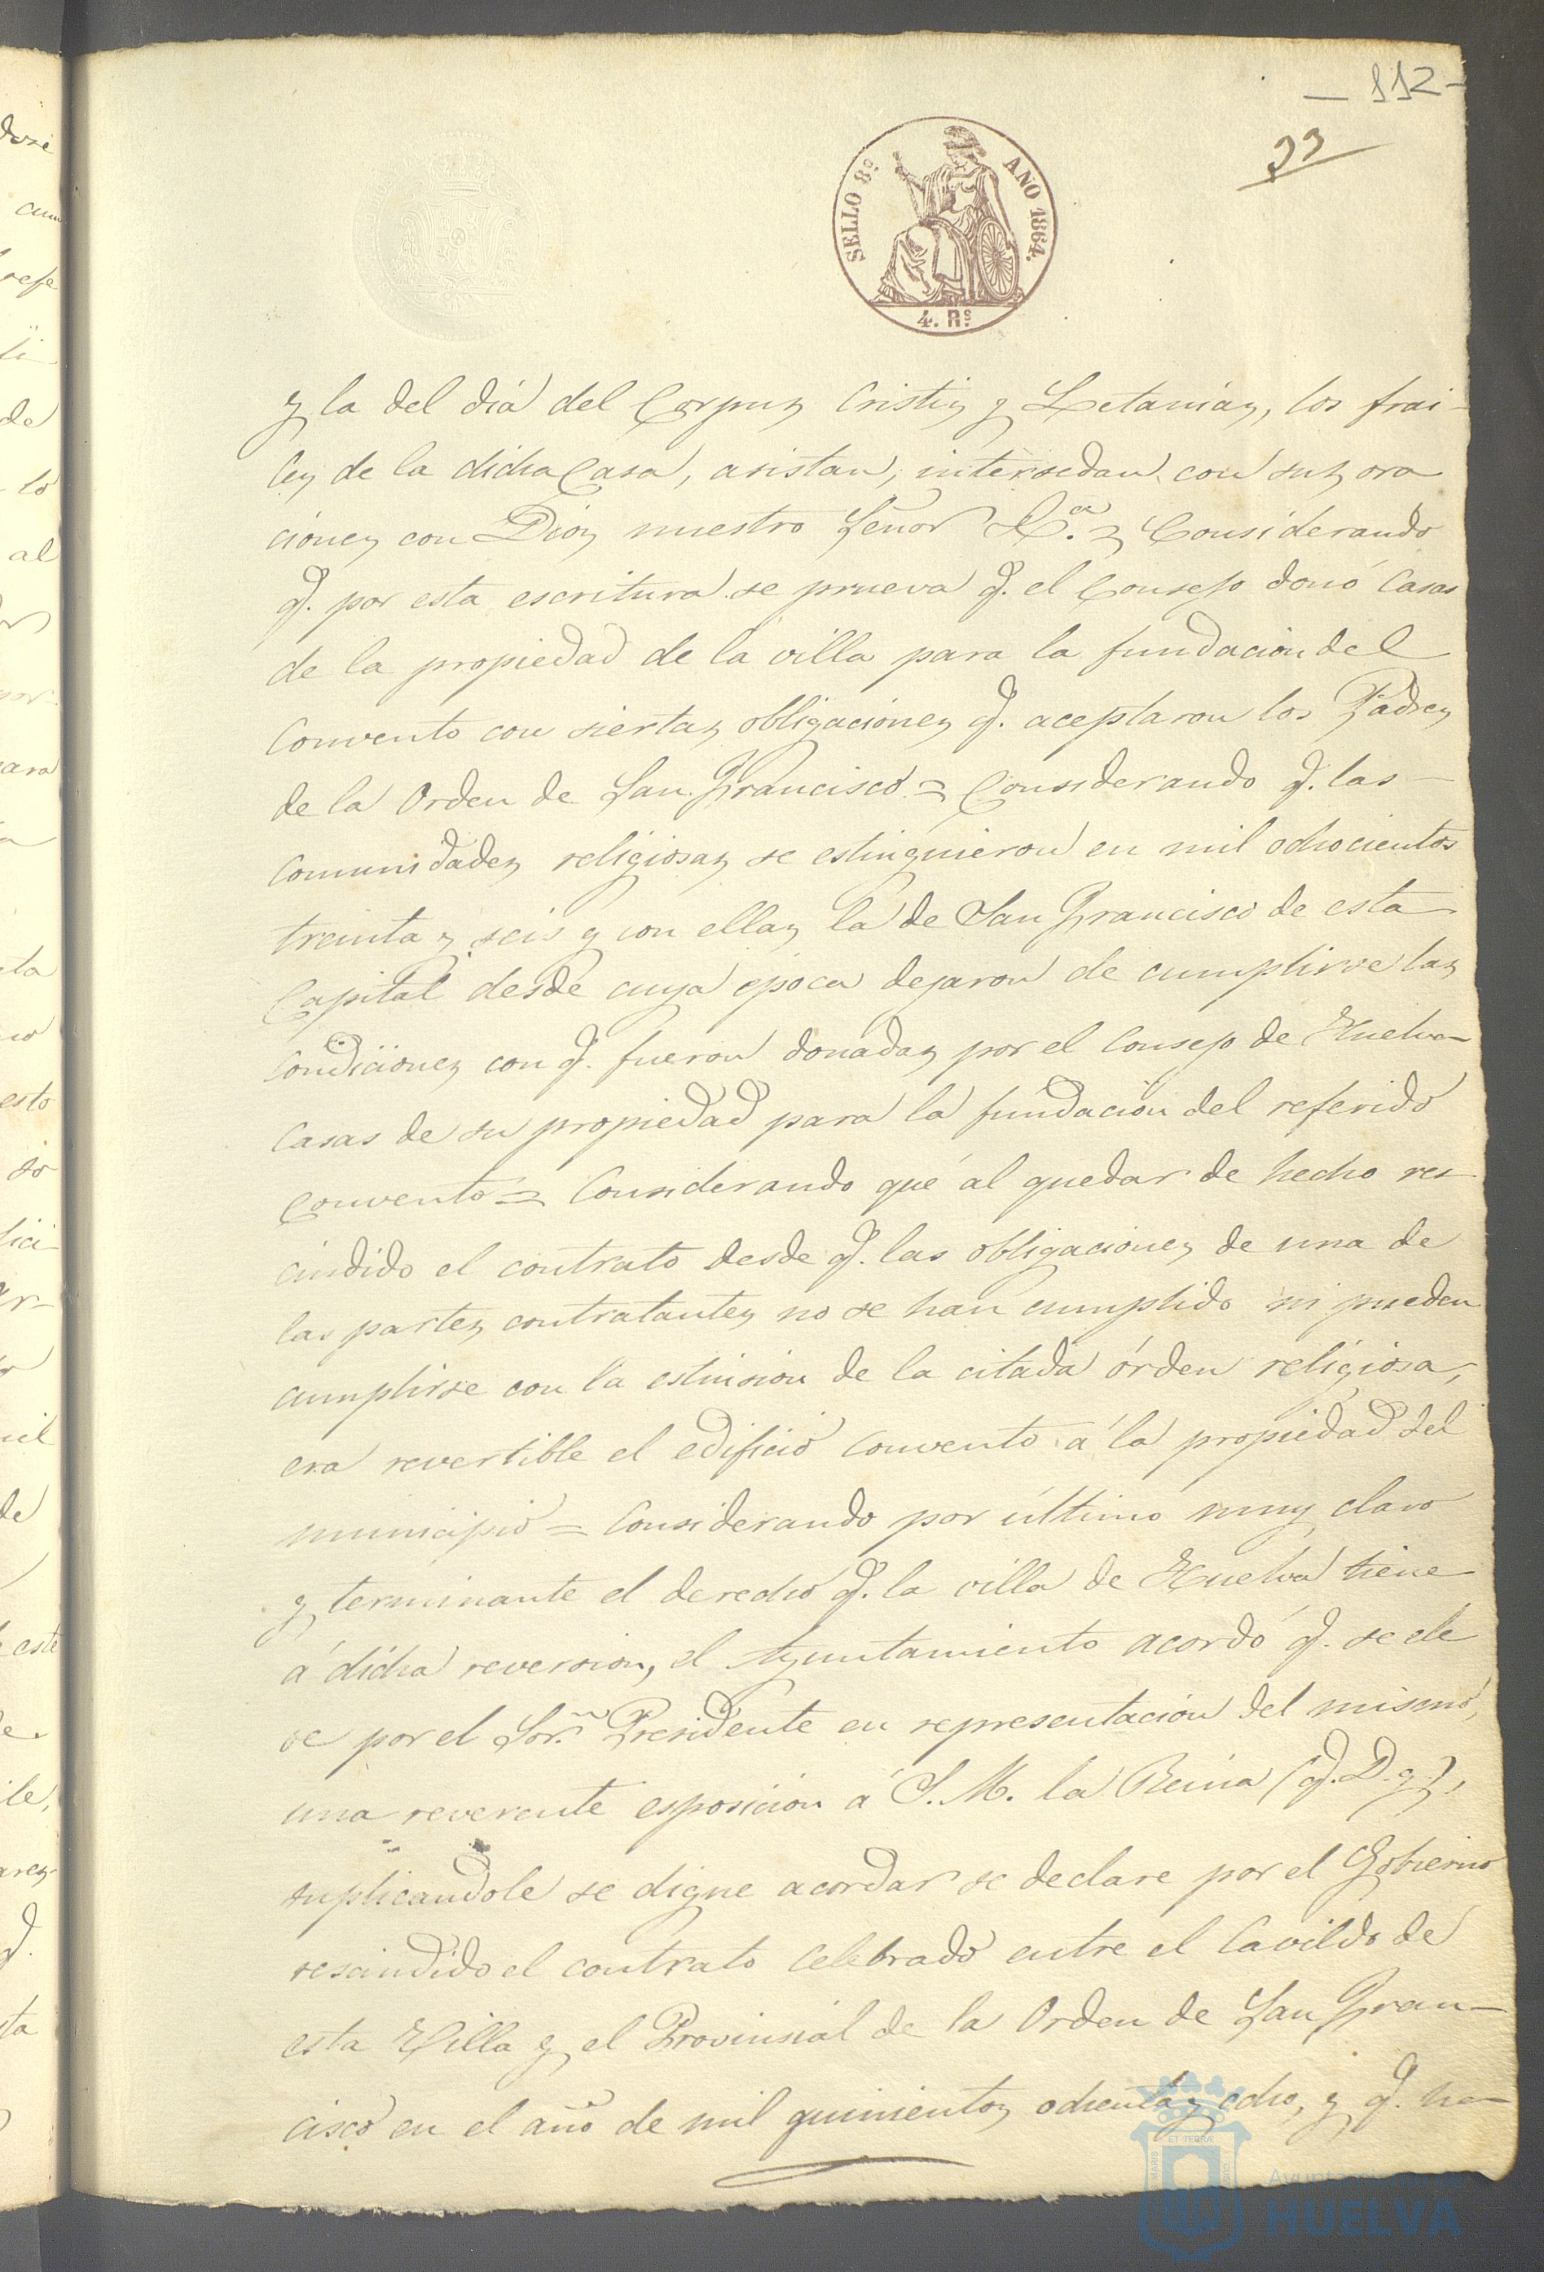 - 112 -
33
SELLO 8º AÑO 1864.
4. Rs
y la del diá del Corpus Cristis y Letanias, los frai-
les de la dicha Casa, asistan, intersedan con sus ora
ciones con Dios nuestro Señor &.ª = Considerando
q. por esta escritura se prueva q. el Consejo donó Casas
de la propiedad de la villa para la fundacion del
Convento con siertas obligaciones q. aceptaron los Padres
de la Orden de San Francisco = Considerando q. las
comunidades religiosas se estinguieron en mil ochocientos
treinta y seis y con ellas la de San Francisco de esta
Capital desde cuya época dejaron de cumplirse las
condiciones con q. fueron donadas por el Consejo de Huelva
Casas de su propiedad para la fundacion del referido
Convento = Considerando que al quedar de hecho res
cindido el contrato desde q. las obligaciones de una de
las partes contratantes no se han cumplido ni pueden
cumplirse con la estinsion de la citada órden religiosa,
era revertible el edificio Convento á la propiedad del
municipio = Considerando por último muy claro
y terminante el derecho q. la villa de Huelva tiene
á dicha reversion, el Ayuntamiento acordó q. se ele
ve por el Sor. Presidente en representacion del mismo,
una reverente esposicion á S. M. la Reina (q. D. g.),
suplicandole se digne acordar se declare por el Gobierno
rescindido el contrato celebrado entre el Cavildo de
esta Villa y el Provinsial de la Orden de San Fran-
cisco en el año de mil quinientos ochenta y ocho, y q. ha-
Ayuntamiento
HUELVA